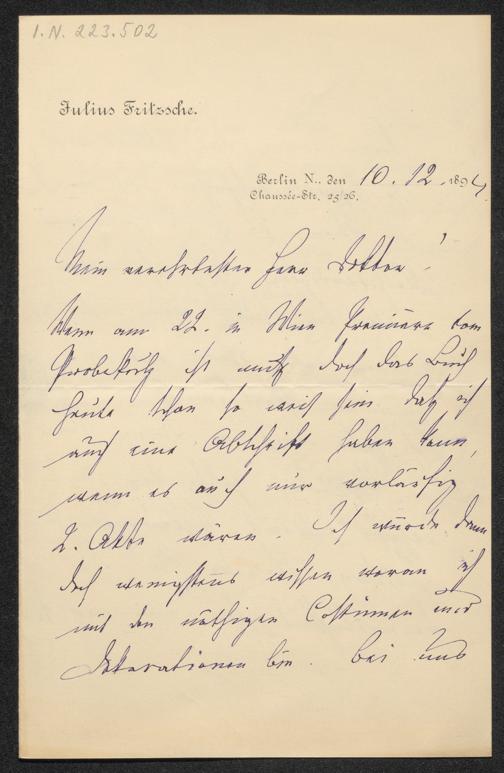 I.N. 223.502
Julius Fritzsche.
Berlin N., den 10. 12. 1894
Chaussée-Str. 25/26.
Mein verehrtester Herr Doktor!
Wenn am 22. in Wien Premiere vom
Probekuß ist muß doch das Buch
heute schon so weit sein daß ich
auch eine Abschrift haben kann,
wenn es auch nur vorläufig
2. Akte wären. Ich würde dann
doch wenigstens wissen woran ich
mit den nöthigen Costümen und
Dekorationen bin. Bei uns